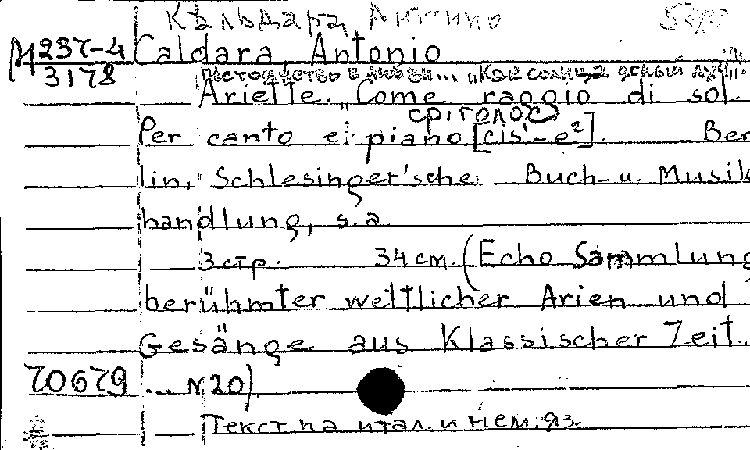 Кальдара, Антонио
М 237-4 Caldara, Antonio
3178
постоянство в любви... "Как солнца ясный луч"
Ariette. "Come raggio di sol.
ср. голос
Per canto e piano [cis'-e²]. Ber
lin, Schlesinger'sche Buch- u. Musik
handlung, s.a.
3 стр. 34 см. (Echo Sammlung
berühmter weltlicher Arien und
Gesänge aus Klassischer Zeit.
70679 ... N 20)
Текст на итал. и нем. яз.